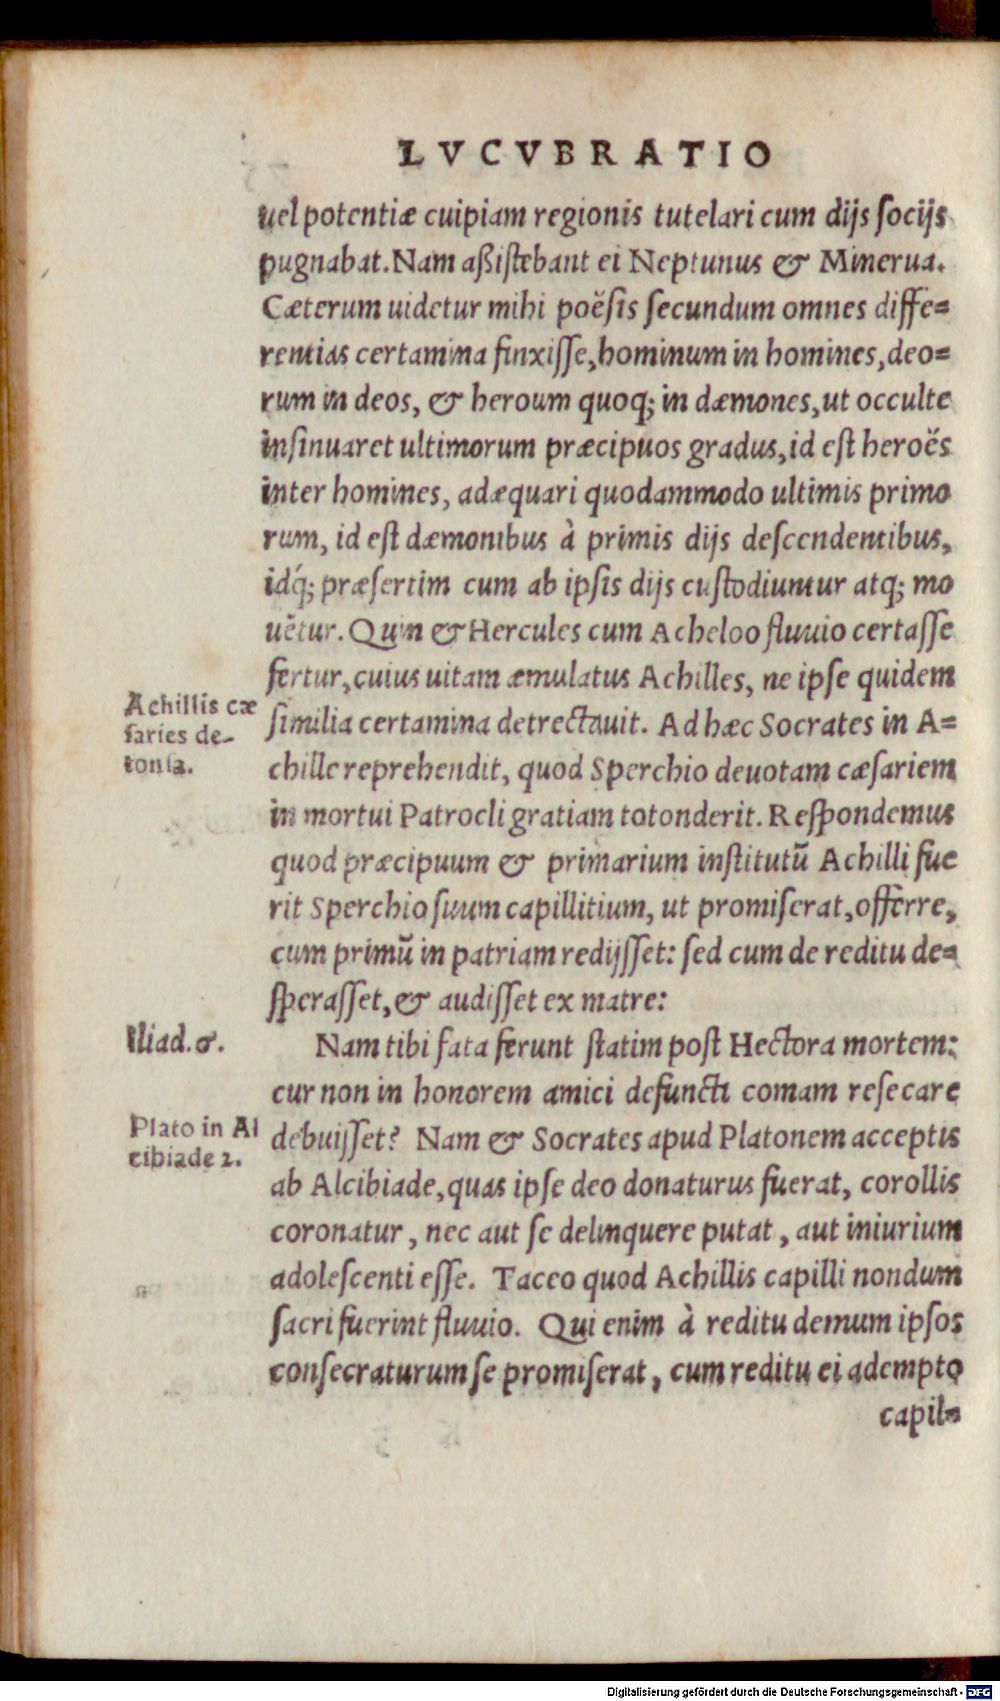 LVCVBRATIO
uel potentiæ cuipiam regionis tutelari cum dijs socijs
pugnabat. Nam aßistebant ei Neptunus & Minerua.
Cæterum uidetur mihi poësis secundum omnes diffe=
rentias certamina finxisse, hominum in homines, deo=
rum in deos, & heroum quoq; in dæmones, ut occulte
insinuaret ultimorum præcipuos gradus, id est heroës
inter homines, adæquari quodammodo ultimis primo
rum, id est dæmonibus à primis dijs descendentibus,
idq́; præsertim cum ab ipsis dijs custodiuntur atq; mo
uẽtur. Quin & Hercules cum Acheloo fluuio certasse
fertur, cuius uitam æmulatus Achilles, ne ipse quidem
Achillis cæ
saries de-
tonsa.
similia certamina detrectauit. Ad hæc Socrates in A=
chille reprehendit, quod Sperchio deuotam cæsariem
in mortui Patrocli gratiam totonderit. Respondemus
quod præcipuum & primarium institutũ Achilli fue
rit Sperchio suum capillitium, ut promiserat, offerre,
cum primũ in patriam redijsset: sed cum de reditu de=
sperasset, & audisset ex matre:
Iliad. σ.
Nam tibi fata ferunt statim post Hectora mortem:
cur non in honorem amici defuncti comam resecare
Plato in Al
cibiade 2.
debuisset? Nam & Socrates apud Platonem acceptis
ab Alcibiade, quas ipse deo donaturus fuerat, corollis
coronatur, nec aut se delinquere putat, aut iniurium
adolescenti esse. Taceo quod Achillis capilli nondum
sacri fuerint fluuio. Qui enim à reditu demum ipsos
consecraturum se promiserat, cum reditu ei adempto
capil=
Digitalisierung gefördert durch die Deutsche Forschungsgemeinschaft - DFG